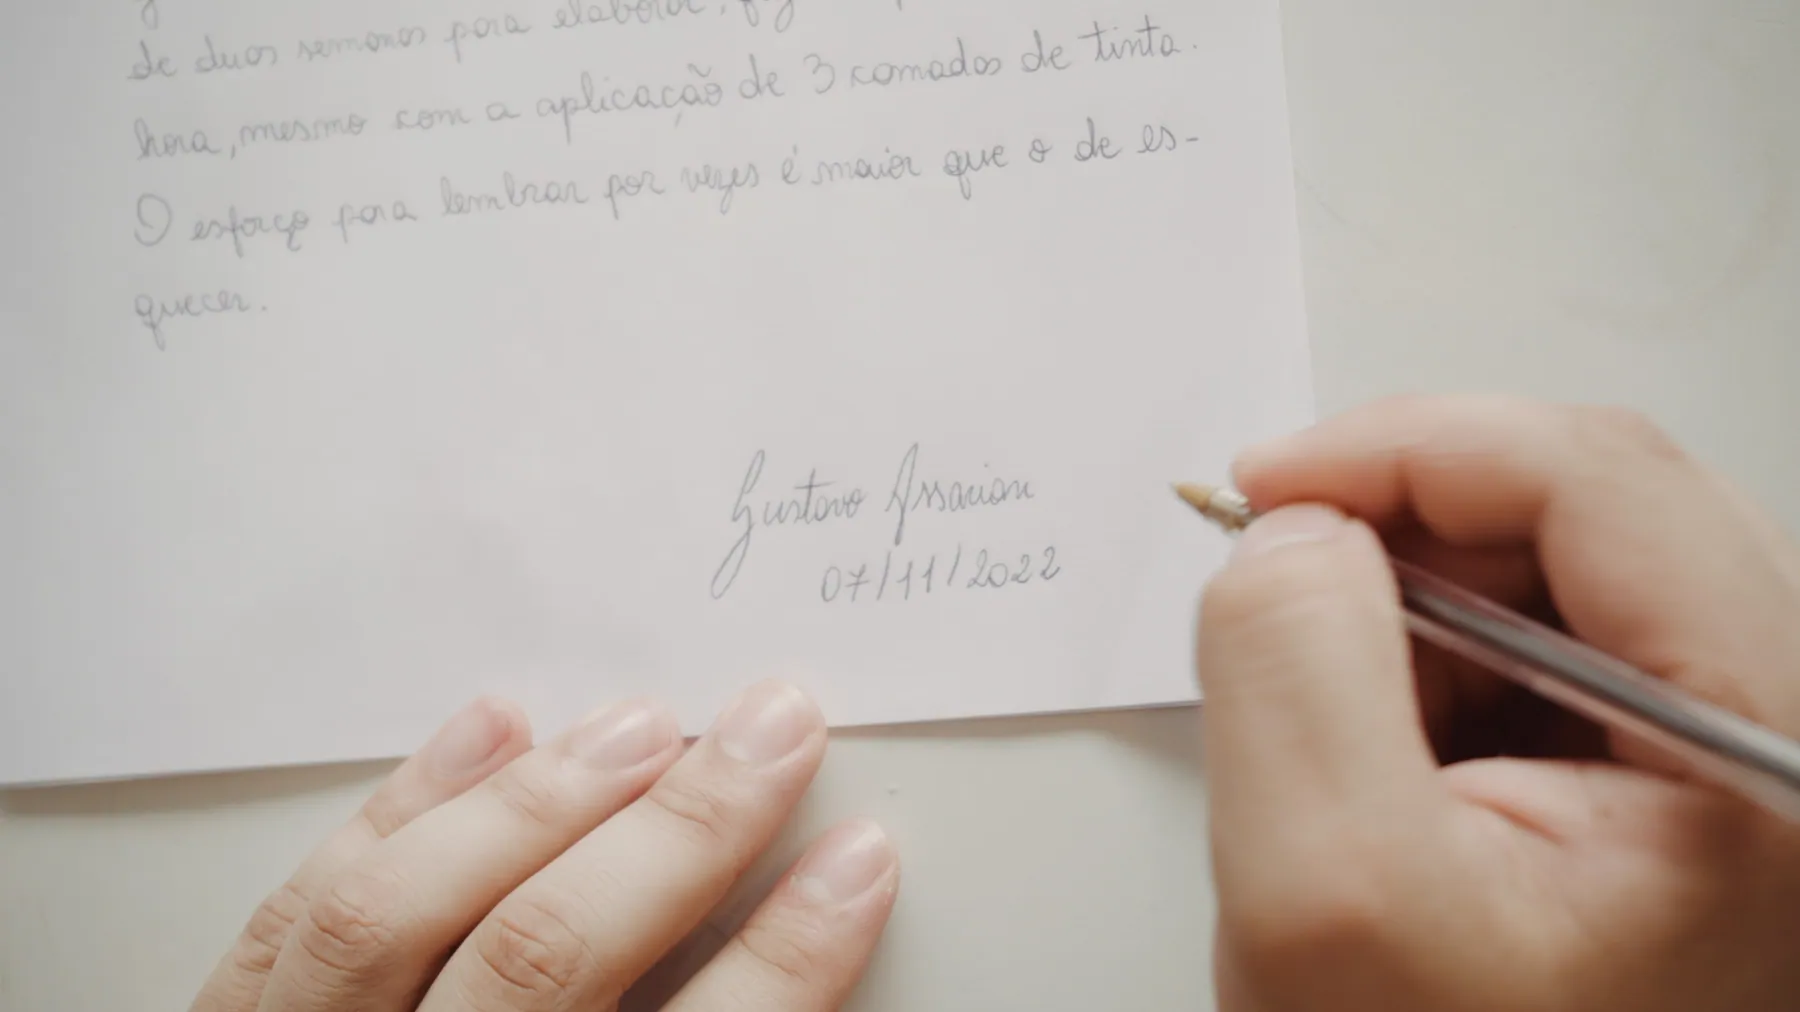 de duas semanas para elaborar,
hora, mesmo com a aplicação de 3 camadas de tinta.
O esforço para lembrar por vezes é maior que o de es-
quecer.
Gustavo Assarian
07/11/2022